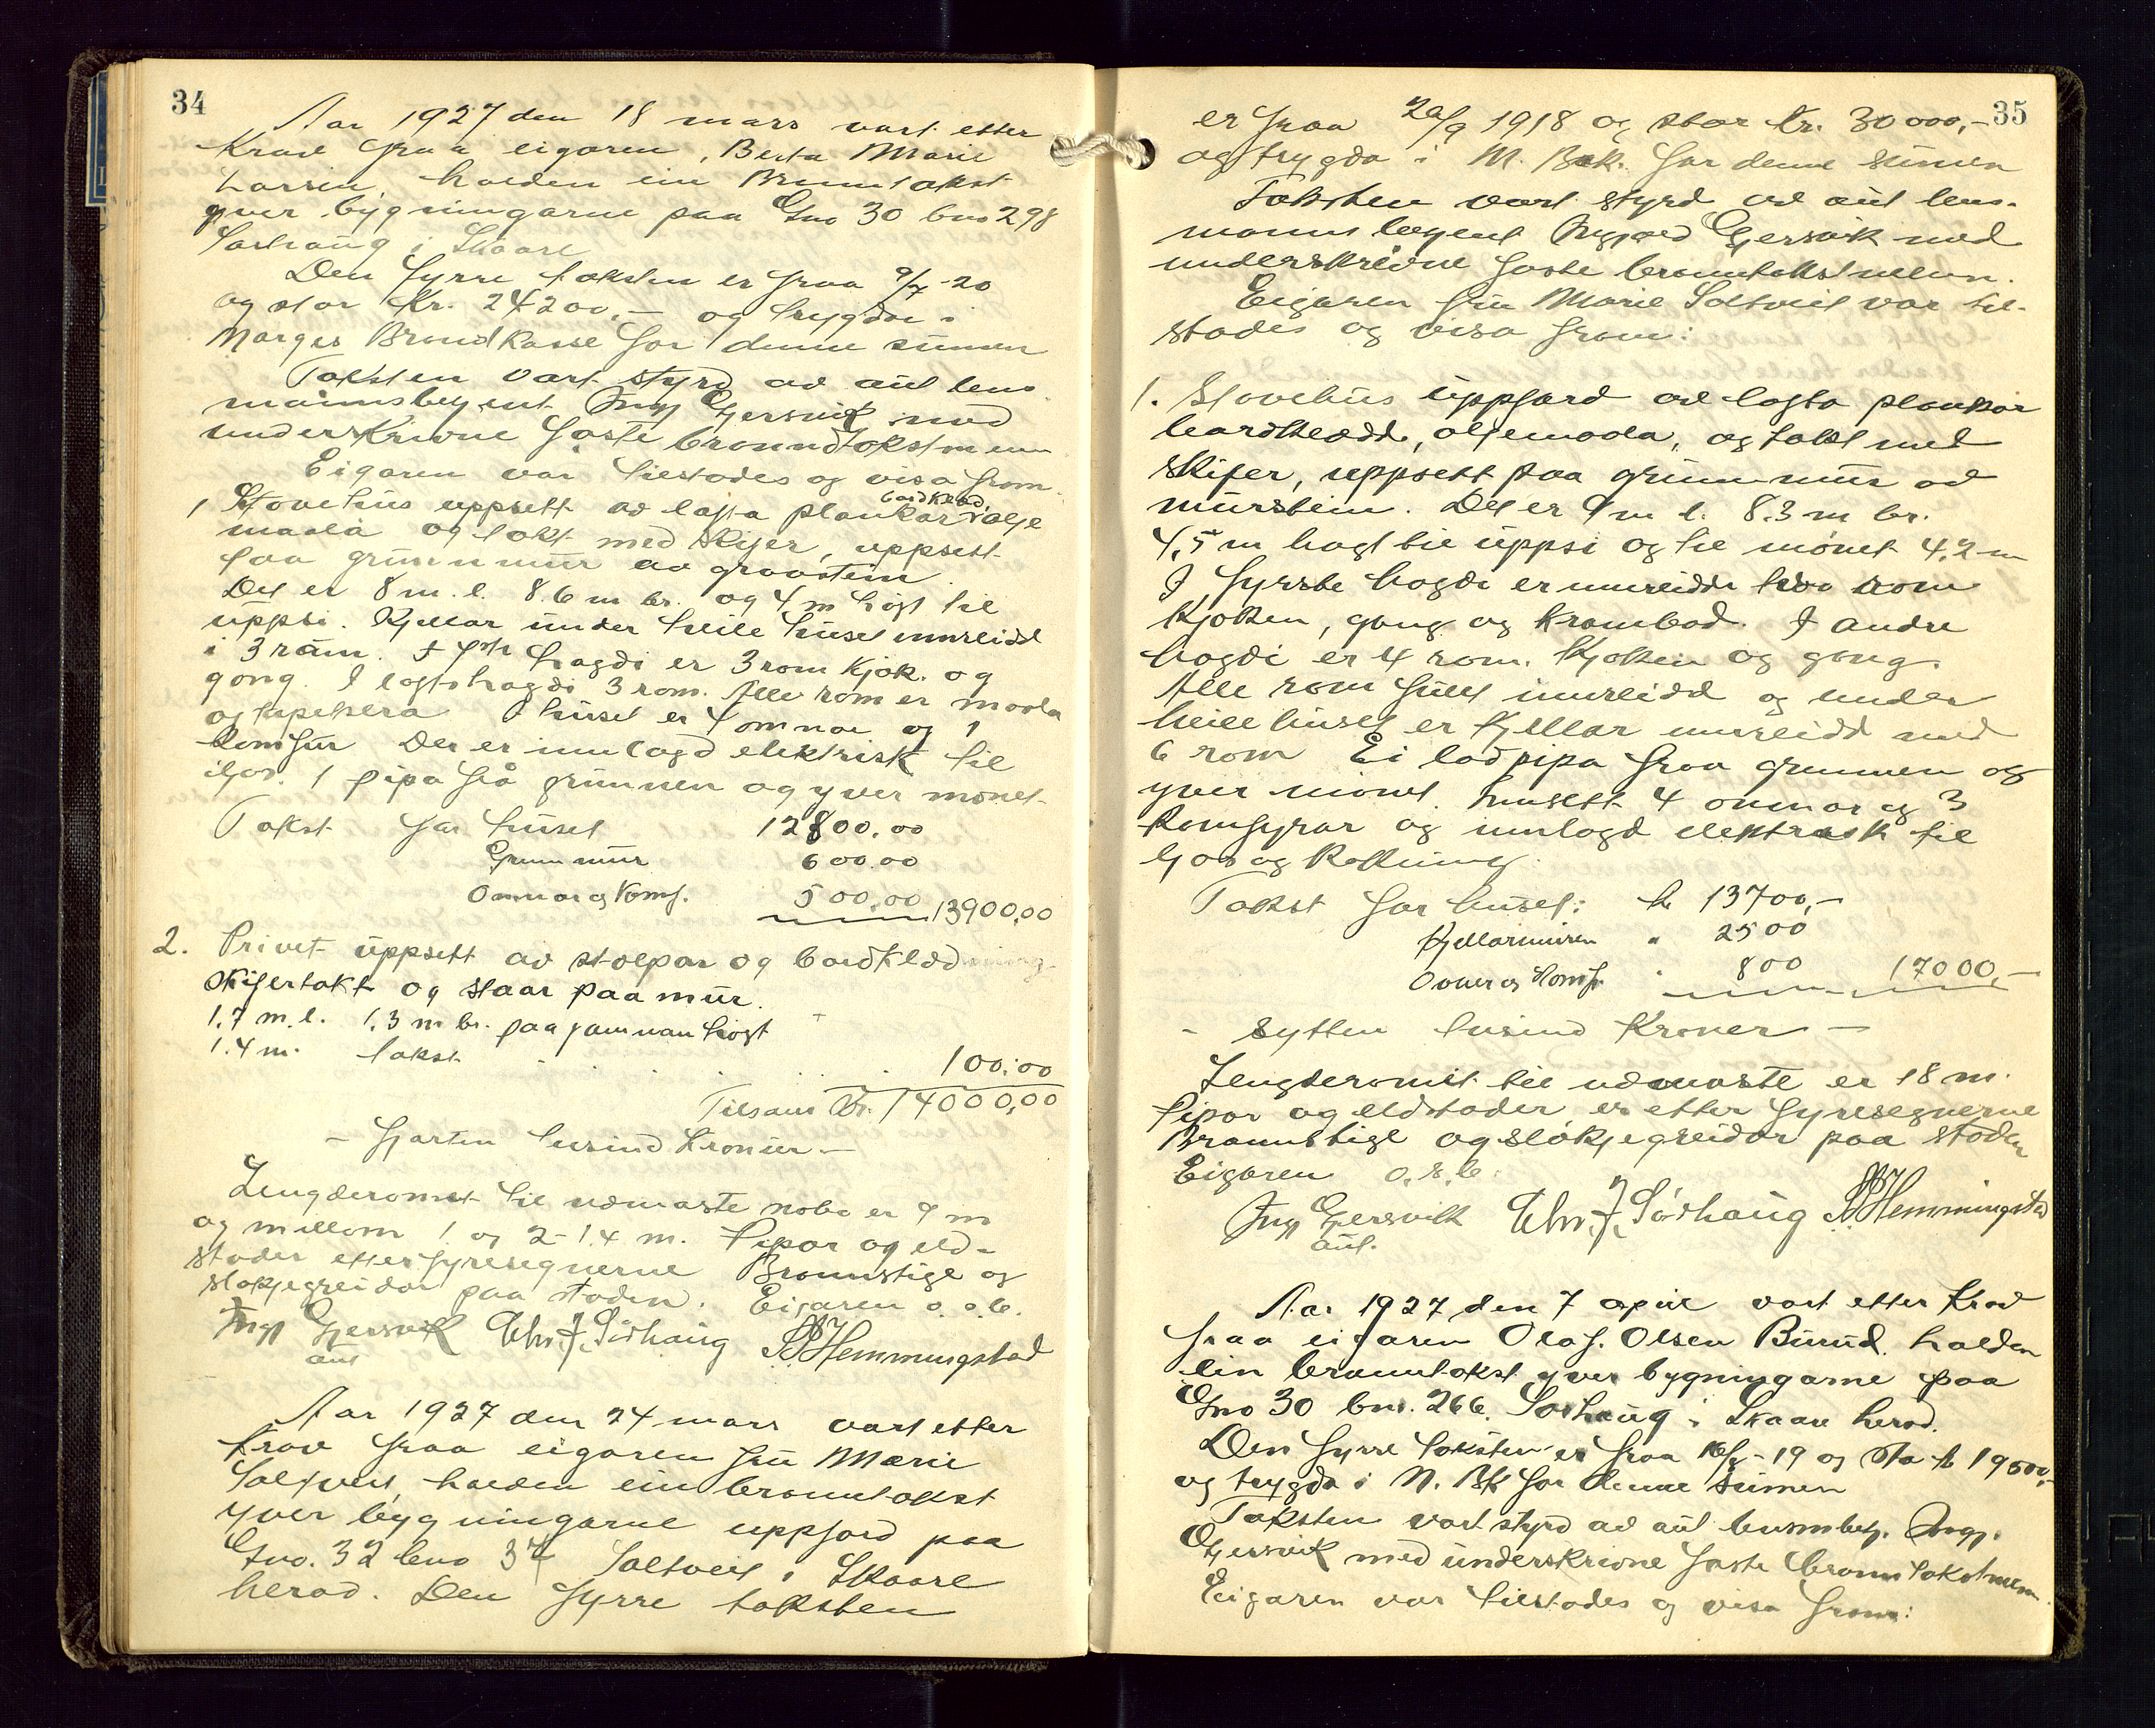 34
Aar 1927 den 18 mars vart etter
Krav fraa eigaren, Berta Marie
Larsen, halden ein Branntakst
yver bygningarne paa Gno 30 bno 298
Sørhaug i Skaare
Den fyrre taksten er fraa 9/7-20
og stor Kr. 24200,- og trygda i
Norges Brandkasse for denne summen
Taksten vart styrd av aut lens
mannsbetjent Ing Gjersvik med
underskrivne faste branntakstmenn
Eigaren var tilstades og visa fram.
1 Stovehus uppsett av lafta plankar bordkledd, olje
maala og takt med skifer, uppsett
paa grunnmur av graastein.
Det er 8 m. l. 8.6 m br. og 4 m høgt til
uppsi. Kjellar under heile huset innreidd
i 3 rum. I fyrste høgdi er 3 rom kjøk. og
gong. I loftshøgdi 3 rom. Alle rom er maala
og tapetsera I huset er 4 omnar og 1
komfur Der er innlagd elektrisk til
ljos. 1 pipa frå grunnen og yver mønet.
Takst for huset 12800.00
Grunnmur 600.00
Omnar og komf. 500,00 13900,00
2. Privet uppsett av stolpar og bordklædning
skifertakt og staar paa mur.
1.7 m. l. 1.3 m br. paa jamnan høgt
1.4 m. takst . . . . . 100.00
Tilsam Kr. 14000,00
- Fjorten tusind kronur -
Lengderomet til nærmaste nabo er 9 m
og millom 1 og 2 - 1.4 m. Pipor og eld-
stader etter fyresegnerne Brannstige og
sløkjegreidor paa staden. Eigaren o. s. b.
Ing Gjersvik Chr. J. Sørhaug B Hemmingstad
aut
Aar 1927 den 24 mars vart etter
krav fraa eigaren fru Marie
Saltveit, halden ein branntakst
yver bygningarne uppford paa
Gno. 32 bno 37 Saltveit i Skaare
herad. Den fyrre taksten
35
er fraa 20/9 1918 og stor kr. 30000,-
og trygda i N. Bk. for denne summen
Taksten vart styrd av aut lens-
mannsbetjent Ingvald Gjersvik med
underskrivne faste branntakstmenn.
Eigaren fru Marie Saltveit var til-
stades og visa fram:
1. Stovehus uppford av lafta plankar
bordkledd, oljemaala, og takt med
skifer, uppsett paa grunnmur av
murstein. Det er 9 m l. 8.3 m br.
4,5 m høgt til uppsi og til mønet 4,2 m
I fyrste høgdi er innreidde tvo rom
kjøken, gong og krambod. I andre
høgdi er 4 rom, kjøken og gong.
Alle rom fullt innreidd og under
heile huset er kjellar innreidd med
6 rom Ei lodpipa fraa grunnen og
yver mønet. Innsett 4 omnar og 3
komfyrar og innlagd elektrisk til
ljos og kokning.
Takst for huset: kr 13700,-
Kjellarmuren " 2500
Ovner og Komf. " 800 17000,-
- Sytten tusind kroner -
Lengderomet til nærmaste er 18 m.
Pipor og eldstader er etter fyresegnerne
Brannstige og sløkjegreidor paa staden
Eigaren o. s. b.
Ing Gjersvik Chr. J. Sørhaug B Hemmingstad
aut.
Aar 1927 den 7 april vart etter krav
fraa eigaren Olaf Olsen Burud, halden
ein branntakst yver bygningarne paa
Gno 30 bno. 266. Sørhaug i Skaare herad.
Den fyrre taksten er fraa 16/8-19 og sto kr 19500,-
og trygda i N. Bk for denne summen
Taksten vart styrd av aut lensmbetj. Ing.
Gjersvik med underskrivne faste branntakstmenn.
Eigaren var tilstades og visa fram: